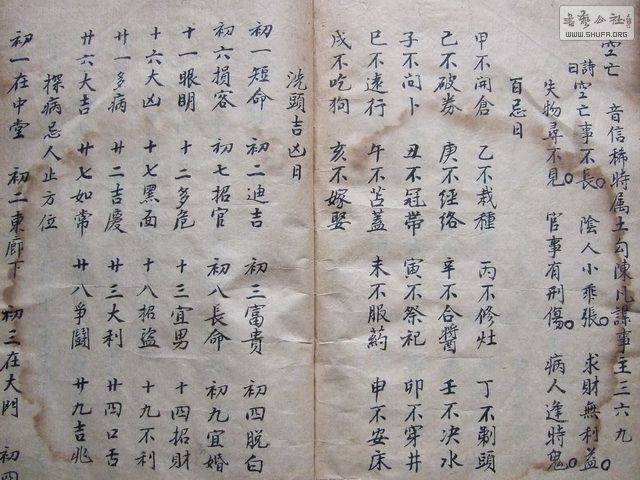 书艺公社
WWW.SHUFA.ORG
空亡 音信稀時属土勾陳凡謀事主三六九
詩曰 空亡事不長。 陰人小乖張。 求財無利益。
失物尋不見 官事有刑傷。 病人逢時鬼。
百忌日
甲不開倉 乙不栽種 丙不修灶 丁不剃頭
己不破券 庚不經絡 辛不合醬 壬不决水
子不问卜 丑不冠帶 寅不祭祀 卯不穿井
巳不遠行 午不苫蓋 未不服葯 申不安床
戌不吃狗 亥不嫁娶
洗頭吉凶日
初一短命 初二迪吉 初三富貴 初四脱白
初六損客 初七招官 初八長命 初九宜婚
十一眼明 十二多危 十三宜男 十四招財
十六大凶 十七黑面 十八招盜 十九不利
廿一多病 廿二吉慶 廿三大利 廿四口舌
廿六大吉 廿七如常 廿八爭鬪 廿九吉兆
探病忌人止方位
初一在中堂 初二東廊下 初三在大門 初四